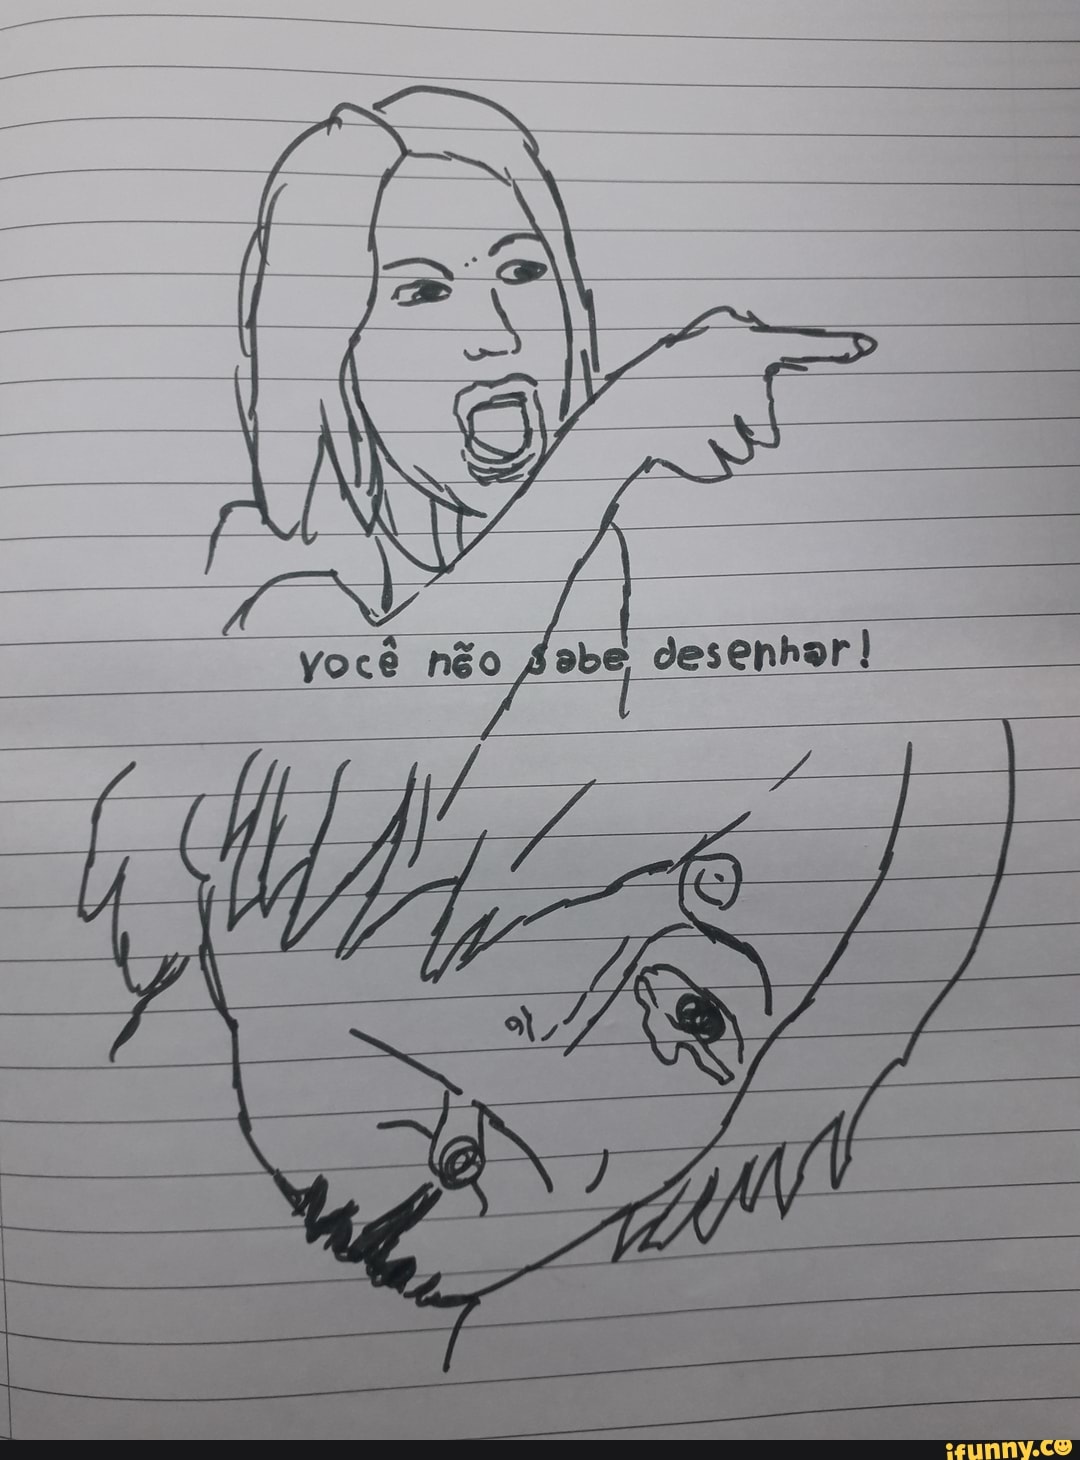 você não sabe desenhar!
ifunny.co